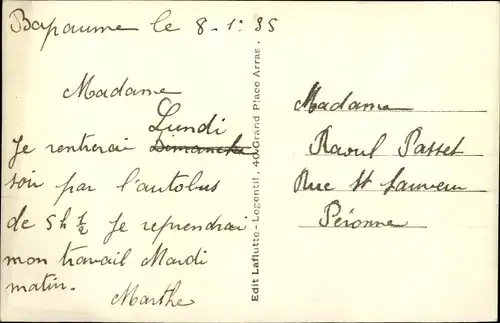 Bapaume le 8-1-35
Madame
Lundi
Je rentrerai Demanche
soir par l'autobus
de 5h 1/2 Je reprendrai
mon travail Mardi
matin.
Marthe
Edit Laflutte-Legentil, 40 Grand Place Arras.
Madame
Raoul Passet
Rue St Sauveur
Péronne